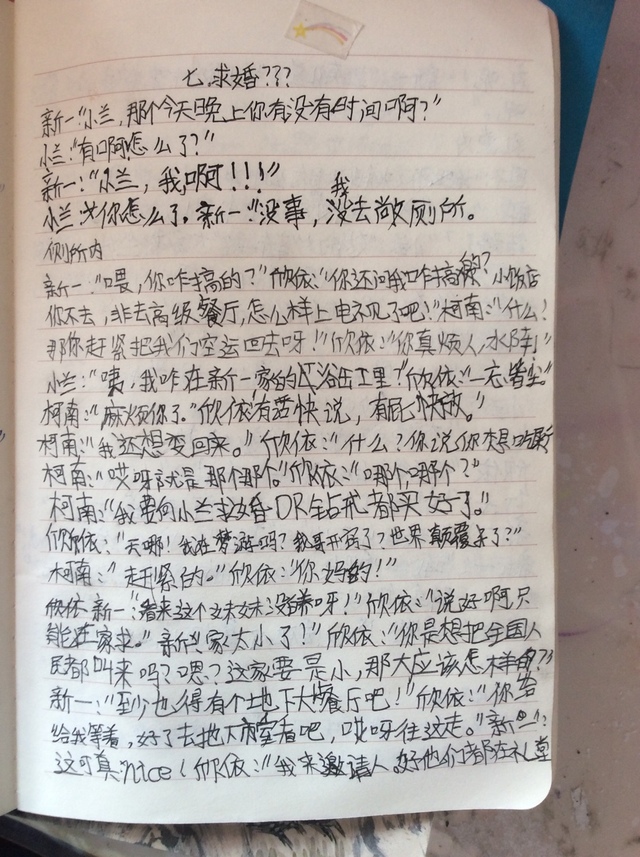 七.求婚???
新一:“小兰，那个今天晚上你有没有时间啊?”
小兰:“有啊怎么了?”
新一:“小兰，我啊!!!”
小兰:“你怎么了。新一:“没事，我没去尚厕所。
厕所内
新一:“喂，你咋搞的?”欣依:“你还问我咋搞的?小饭店
你不去，非去高级餐厅，怎么样上电视见了吧!”柯南:“什么!
那你赶紧把我们空运回去呀!”欣依:“你真烦人，水阵!”
小兰:“咦，我咋在新一家的浴缸里?”欣依:“一忘皆尘。
柯南:“麻烦你了。”欣依:“有苦快说，有屁快放。”
柯南:“我还想变回来。”欣依:“什么?你说你想
柯南:“哎呀就是那个那个。”欣依:“哪个,哪个?”
柯南:“我要向小兰求婚DR钻戒都买好了。”
欣依:“天哪!我在梦游吗?我哥开窍了?世界颠覆了?”
柯南:“赶紧的。”欣依:“你妈的!”
欣依 新一:“看来这个妹妹没白养呀!”欣依:“说好啊只
能在家求。”新一:“家太小了?”欣依:“你是想把全国人
民都叫来吗?嗯?这家要是小，那大应该怎样的?”
新一:“至少也得有个地下大餐厅吧!”欣依:“你给
给我等着，好了去地下室看吧，哎呀往这走。”新一:
这可真nice!欣依:“我来邀请人。好他们都在礼堂